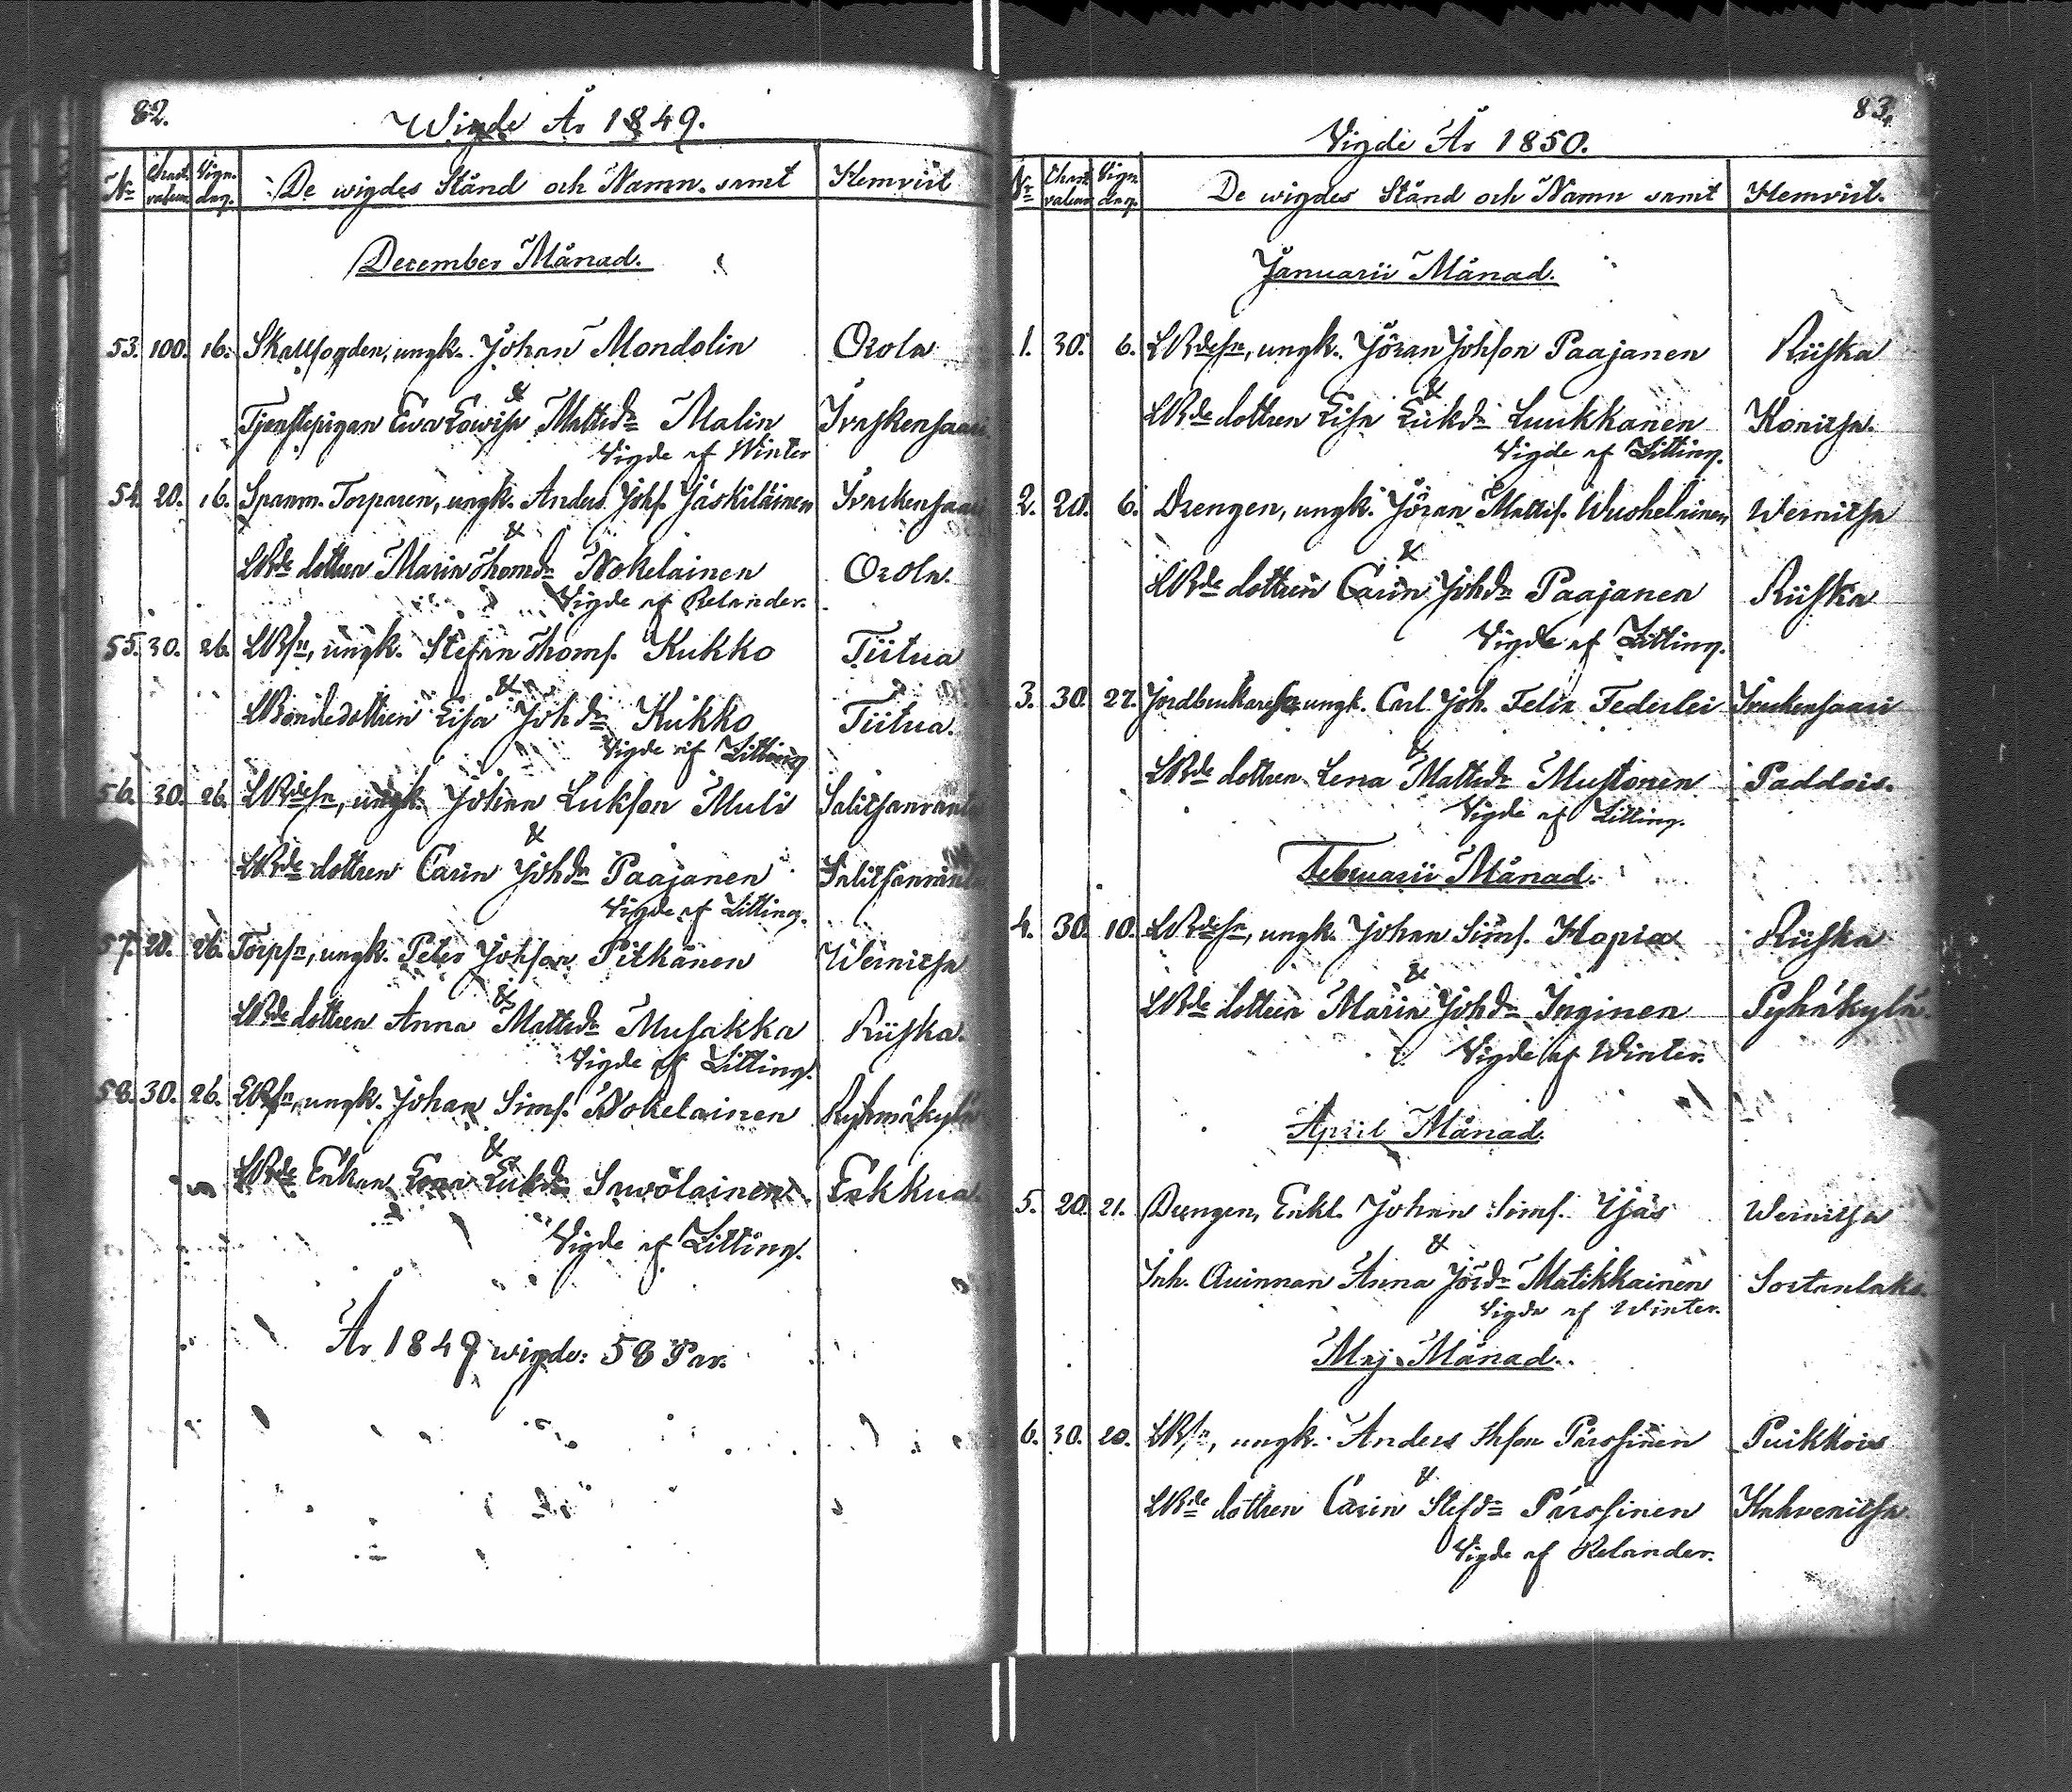 82.
Wigde År 1849.
Nr Chart. valum Vign. dag. De wigdes Stånd och Namn samt Hemvist
December Månad.
53. 100. 16. Skallfogden, ungk. Johan Mondolin Orola
&
Tjenstepigan Eva Lowisa Mattsdr Malin
Vigde af Winter
54. 20. 16. Spanm. Torparen, ungk. Anders Johs. Jäskiläinen
&
LBde dottren Maria Thomdr Nokelainen Orola.
Vigde af Relander.
55. 30. 26. LBsn, ungk. Stefan Thoms. Kukko Tiitua
&
LBondedottren Eisa Johdr Kukko Tiitua.
Vigde af Litting
56. 30. 26. LBdesn, ungk. Johan Lukson Muli Salitsanranta
&
LBde dottren Carin Johdr Paajanen Salitsanranta
Vigde af Litting.
57. 20. 26. Torpsn, ungk. Peter Johson Pitkänen Wernitsa
&
LBde dottren Anna Mattsdr Musakka Riiska.
Vigde af Litting.
58. 30. 26. LBsn, ungk. Johan Sims. Nokelainen Ryhmäkylä
&
LBde Enkan Erikdr Sawolainen Erkkua.
Vigde af Litting.
År 1849 wigde: 58 Par.
83.
Vigde År 1850.
Nr Chart. valum Vign. dag. De wigdes Stånd och Namn samt Hemvist.
Januarii Månad.
1. 30. 6. LBdesn, ungk. Jöran Johson Paajanen Riiska
&
LBde dottren Eisa Erikdr Luukkanen Konitsa.
Vigde af Litting.
2. 20. 6. Drengen, ungk. Jöran Matts. Wuohelainen Wernitsa
&
LBde dottren Carin Johdr Paajanen Riiska
Vigde af Litting.
3. 30. 27. Jordbrukaresn ungk. Carl Joh. Felix Federlei
&
LBde dottren Lena Mattsdr Mustonen Paddois.
Vigde af Litting.
Februarii Månad.
4. 30. 10. LBdesn, ungk. Johan Sims. Hapia Riiska
&
LBde dottren Maria Johdr Inginen Pyhäkylä.
Vigde af Winter.
April Månad.
5. 20. 21. Drengen, Enkl. Johan Sims. Yjäs Wernitsa
&
Inh. Quinnan Anna Jördr Matikkainen Sortanlaks.
Vigde af Winter.
Maj Månad.
6. 30. 20. LBsn, ungk. Anders Pärssinen Puikkois
&
LBde dottren Carin Stefdr Pärssinen Kahvenitsa.
Vigde af Relander.